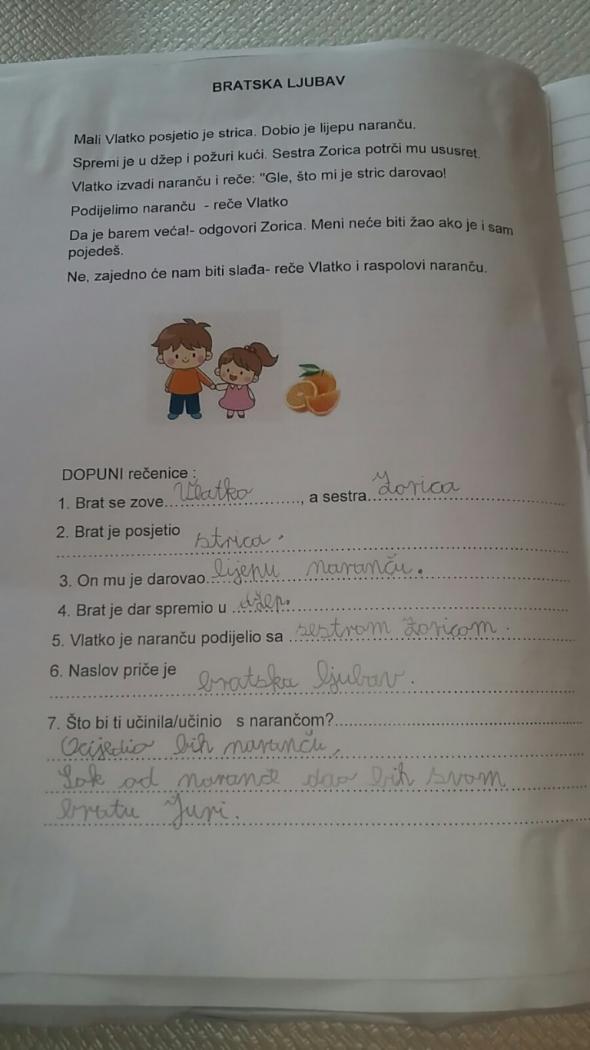 BRATSKA LJUBAV
Mali Vlatko posjetio je strica. Dobio je lijepu naranču.
Spremi je u džep i požuri kući. Sestra Zorica potrči mu ususret.
Vlatko izvadi naranču i reče: "Gle, što mi je stric darovao!
Podijelimo naranču - reče Vlatko
Da je barem veća!- odgovori Zorica. Meni neće biti žao ako je i sam
pojedeš.
Ne, zajedno će nam biti slađa- reče Vlatko i raspolovi naranču.
DOPUNI rečenice :
1. Brat se zove Vlatko, a sestra Zorica
2. Brat je posjetio
strica.
3. On mu je darovao lijepu naranču.
4. Brat je dar spremio u džep.
5. Vlatko je naranču podijelio sa sestrom Zoricom.
6. Naslov priče je
bratska ljubav.
7. Što bi ti učinila/učinio s narančom?
Ocijedio bih naranču,
Sok od naranče dao bih svom
bratu Juri.